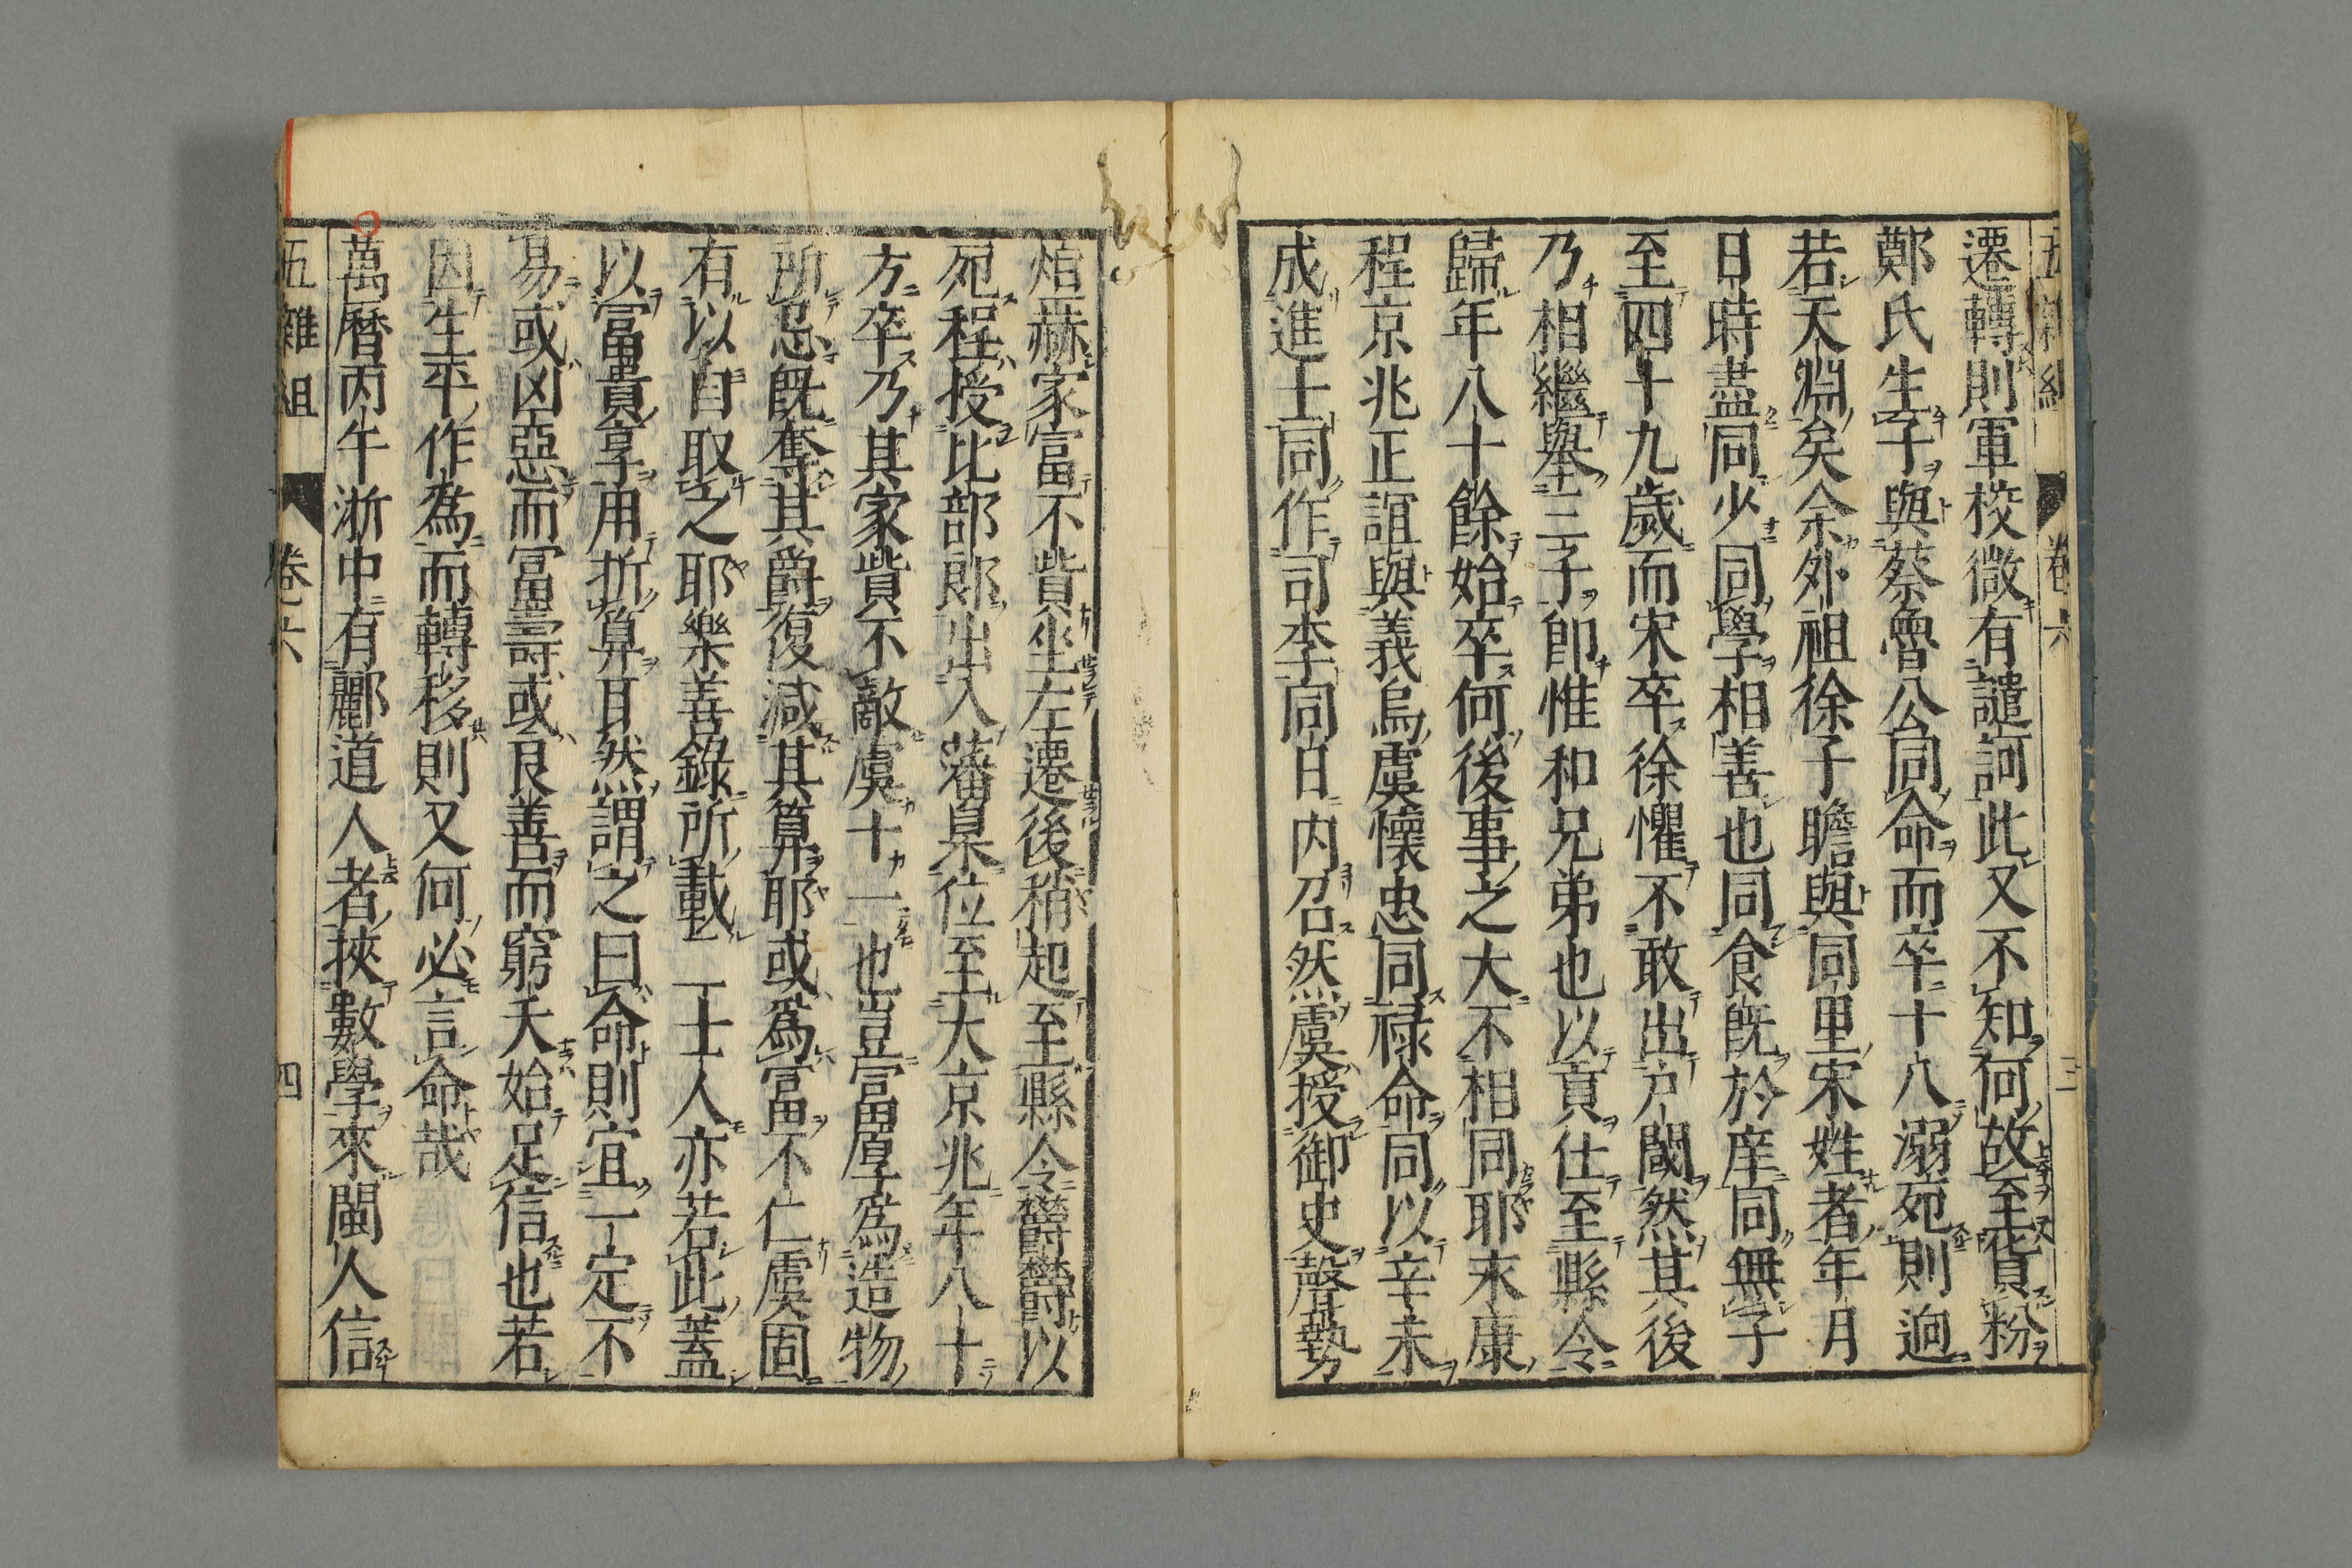 五雜組 卷六 三
遷轉則軍校微有譴訶此又不知何故至貨粉
鄭氏生子與蔡魯公同命而卒十八溺死則迥
若天淵矣余外祖徐子瞻與同里宋姓者年月
日時盡同少同學相善也同食既於庠同無子
至四十九歲而宋卒徐懼不敢出户閾然其後
乃相繼舉三子卽惟和兄弟也以貢仕至縣令
歸年八十餘始卒何後事之大不相同耶永康
程京兆正誼與義烏虞懷忠同祿命同以辛未
成進士同作司李同日内召然虞授御史聲勢
煊赫家富不貲坐左遷後稍起至縣令欝欝以
死程授比部郎出入藩臬位至大京兆年八十
方卒乃其家貲不敵虞十一也豈富厚爲造物
所忌既奪其爵復減其算耶或爲富不仁虞固
有以自取之耶樂善錄所載一士人亦若此蓋
以富貴享用折算耳然謂之曰命則宜一定不
易或凶惡而富壽或良善而窮夭始足信也若
因生平作為而轉移則又何必言命哉
萬曆丙午浙中有酈道人者挾數學來閩人信
五雜組 卷六 四